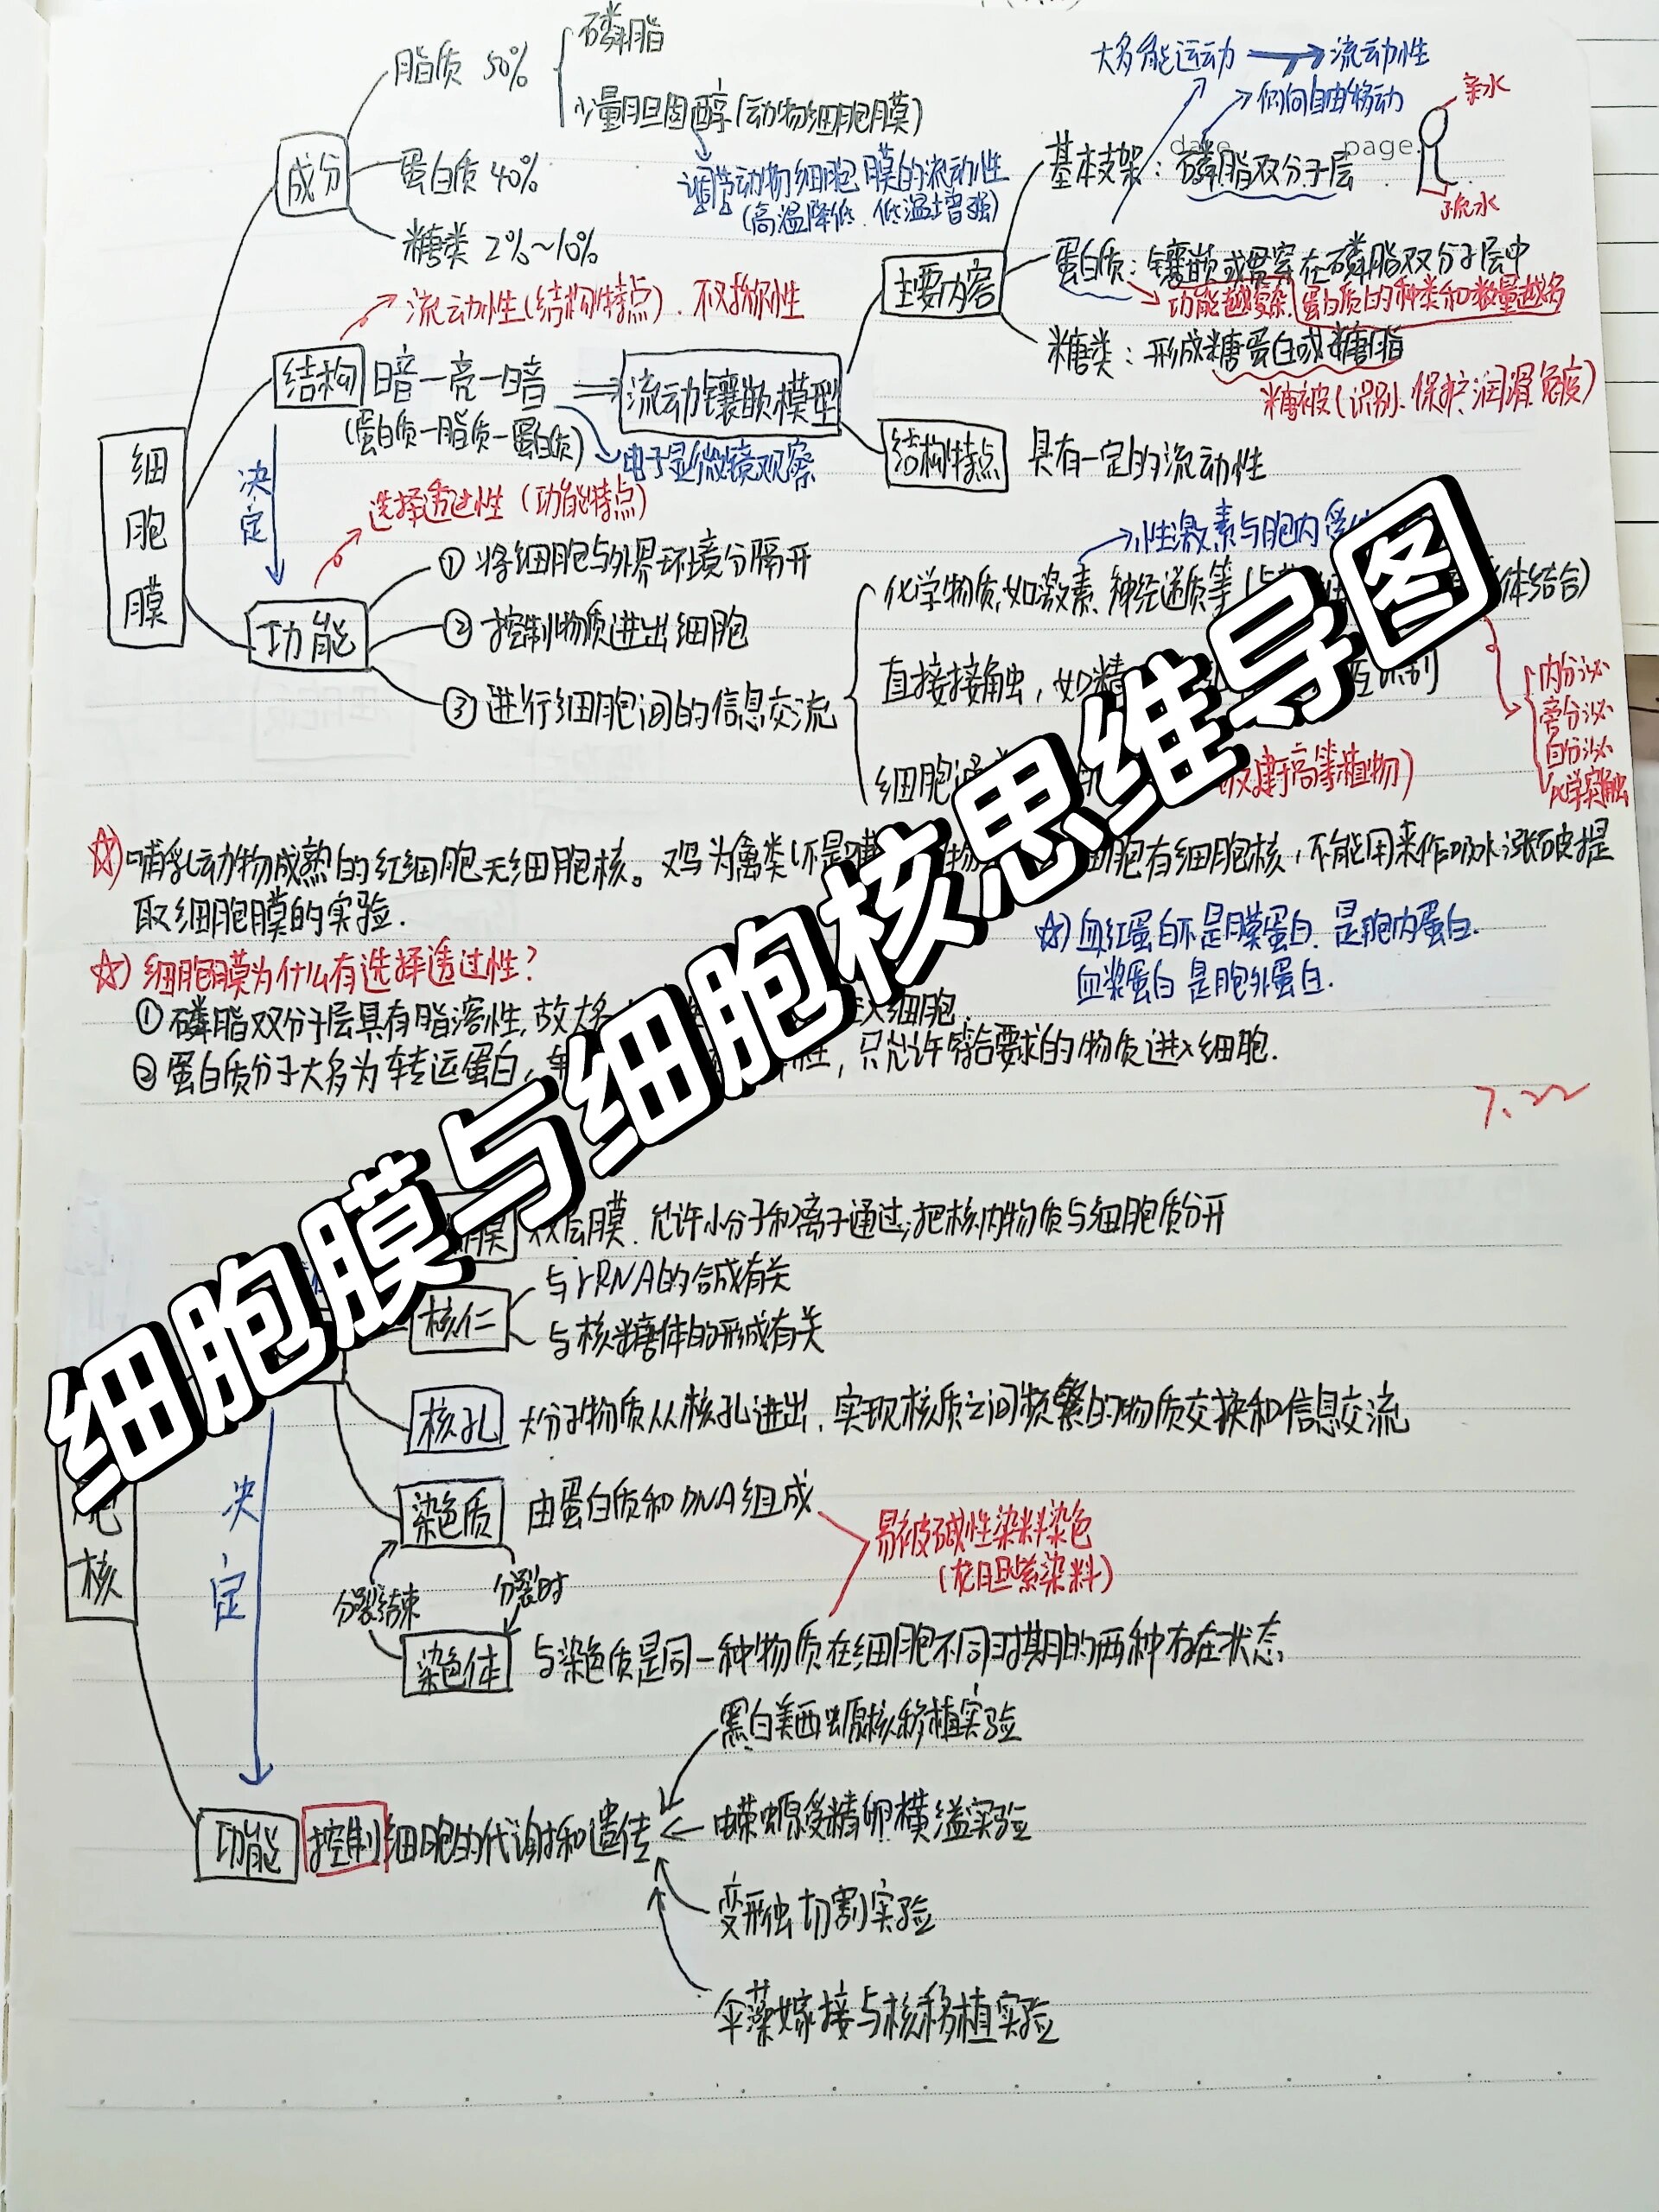 脂质 50%
磷脂
少量胆固醇(动物细胞膜)
调节动物细胞膜的流动性
(高温降低.低温增强)
成分
蛋白质 40%
糖类 2%~10%
大多能运动 → 流动性
侧向自由移动
亲水
疏水
date
page.
基本支架:磷脂双分子层
主要内容
蛋白质:镶嵌或贯穿在磷脂双分子层中
功能越复杂.蛋白质的种类和数量越多
糖类:形成糖蛋白或糖脂
糖被(识别.保护.润滑.免疫)
流动性(结构特点).不对称性
结构
暗一亮一暗
(蛋白质一脂质一蛋白质)
流动镶嵌模型
电子显微镜观察
结构特点
具有一定的流动性
细胞膜
决定
选择透过性(功能特点)
功能
① 将细胞与外界环境分隔开
② 控制物质进出细胞
③ 进行细胞间的信息交流
性激素与胞内受
化学物质,如激素、神经递质等(与
体结合)
直接接触,如精
识别
细胞通
高等植物)
内分泌
旁分泌
自分泌
化学突触
☆)哺乳动物成熟的红细胞无细胞核。鸡为禽类(不是哺
细胞有细胞核,不能用来作吸水涨破提
取细胞膜的实验.
☆)血红蛋白不是膜蛋白.是胞内蛋白.
血浆蛋白是胞外蛋白.
☆)细胞膜为什么有选择透过性?
①磷脂双分子层具有脂溶性,故大多
细胞.
②蛋白质分子大多为转运蛋白,
性,只允许符合要求的物质进入细胞.
7.22
细胞膜与细胞核思维导图
膜
双层膜.允许小分子和离子通过;把核内物质与细胞质分开
核仁
与rRNA的合成有关
与核糖体的形成有关
核孔
大分子物质从核孔进出.实现核质之间频繁的物质交换和信息交流
核
决定
染色质
由蛋白质和DNA组成
易被碱性染料染色
(龙胆紫染料)
分裂结束
分裂时
染色体
与染色质是同一种物质在细胞不同时期的两种存在状态
黑白美西螈核移植实验
功能
控制细胞的代谢和遗传
蝾螈受精卵横缢实验
变形虫切割实验
伞藻嫁接与核移植实验